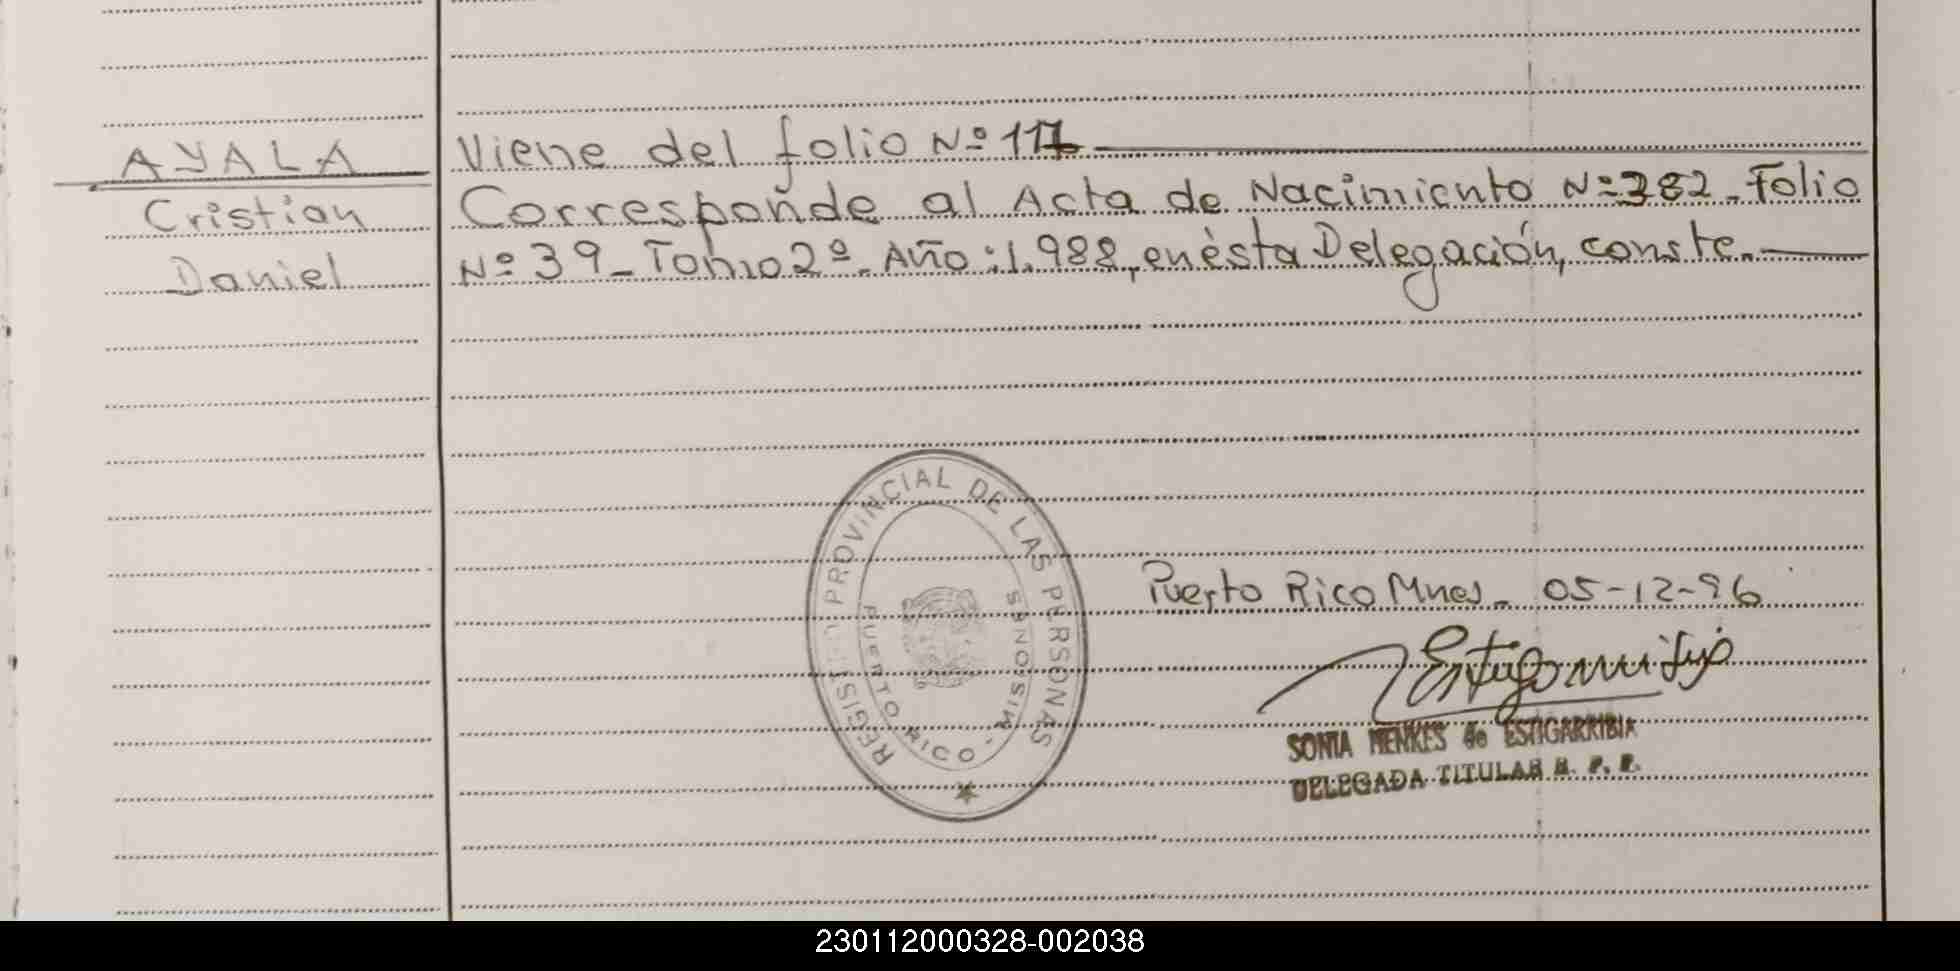 AYALA
Cristian
Daniel
Viene del folio Nº 117
Corresponde al Acta de Nacimiento Nº 382_Folio
Nº 39_Tomo 2º_Año:1.988, en ésta Delegación, conste._
REGISTRO PROVINCIAL DE LAS PERSONAS
PUERTO RICO - MISIONES
Puerto Rico Mnes_ 05-12-96
SONIA MENKES de ESTIGARRIBIA
DELEGADA TITULAR R. P. P.
230112000328-002038